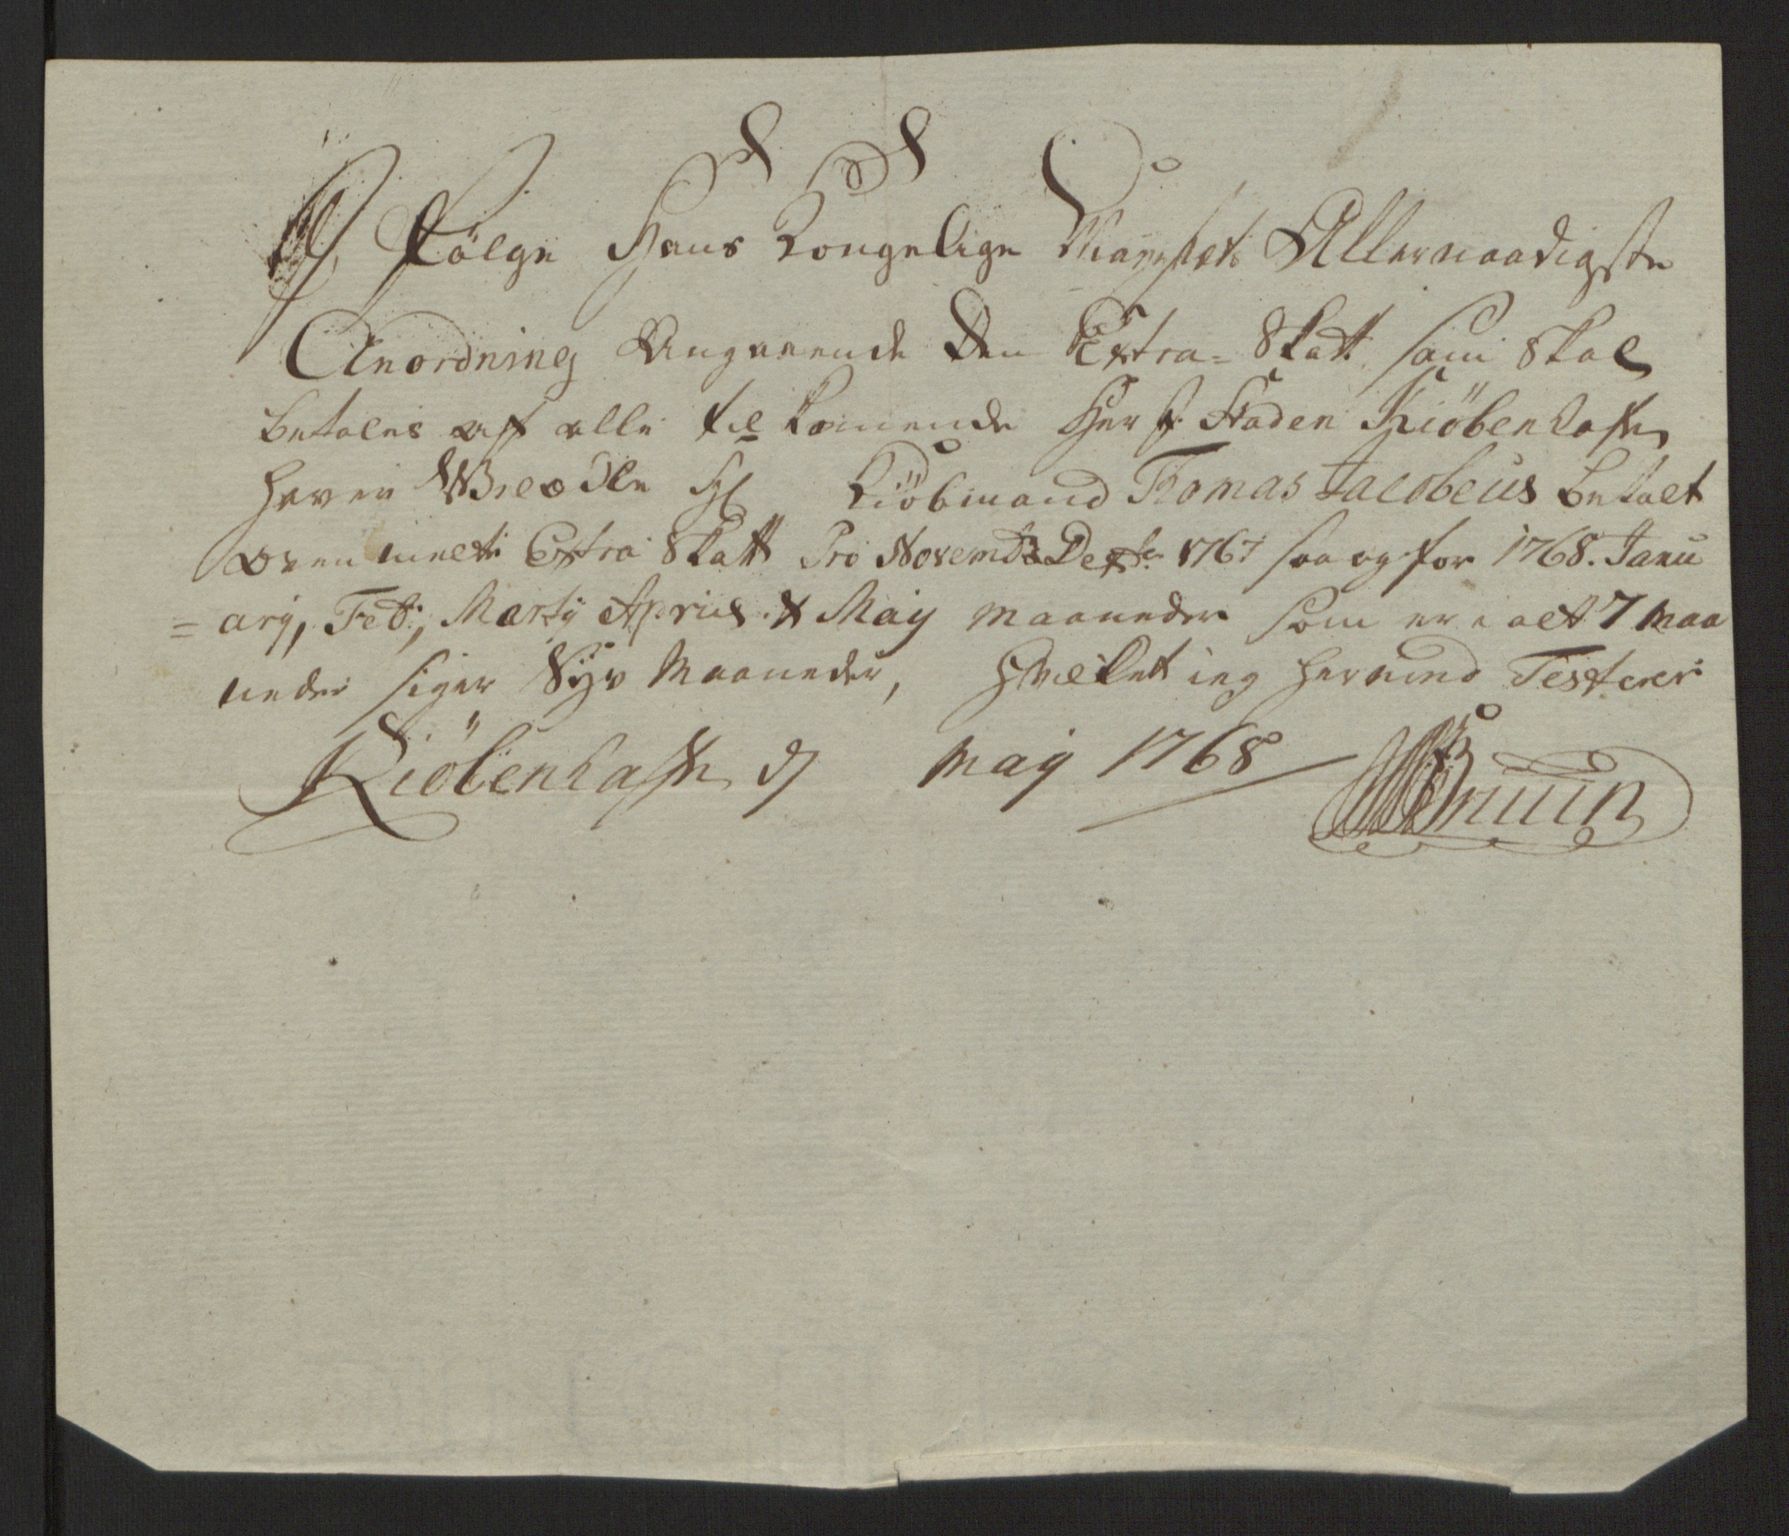 I Fölge Hans Kongelige Mayests Allernaadigste
Anordning Angaaende den Extra- Skatt som skal
betales af alle til komende Her f. Staden Kiöbenhafn
haver Kiöbmand Tomas Jacobeus betalt
oven melte Extra Skatt Pro Novemb: Decbr. 1767 saa og for 1768. Janu
= ary, Feb:, Marty Aprius & May Maaneder som er i alt 7 maa
neder siger Syv Maaneder, Hvilket ieg herved Testerer
Kiöbenhafn d May 1768 Bruun